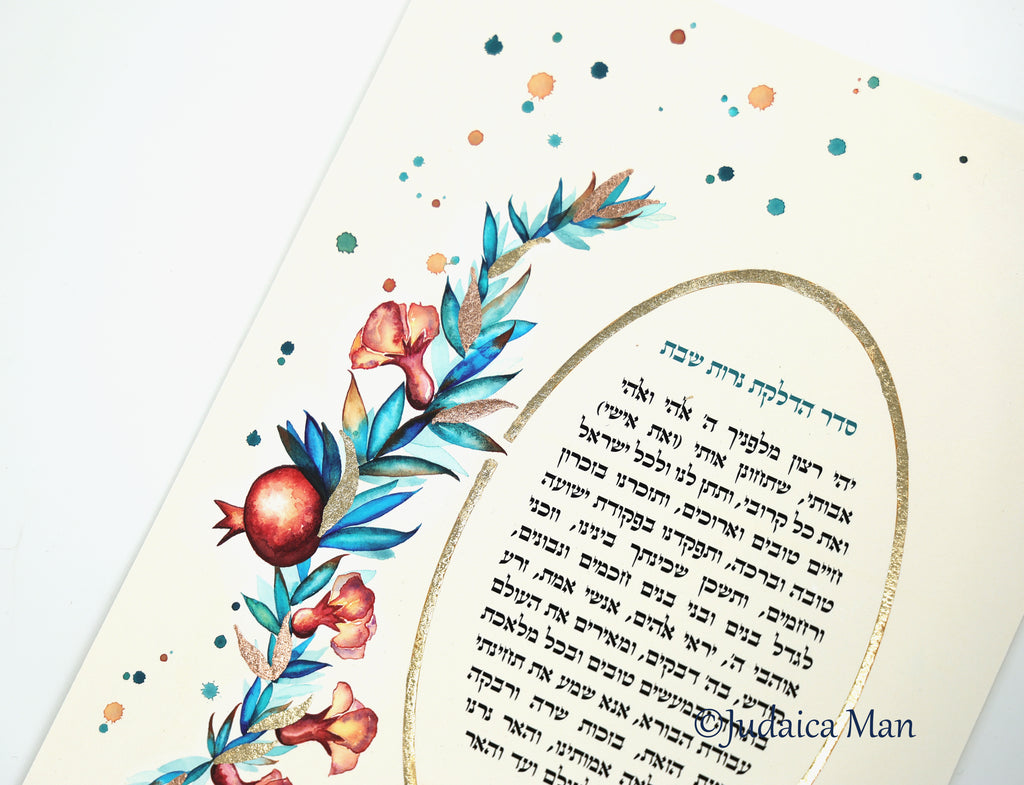 סדר הדלקת נרות שבת
יהי רצון מלפניך ה' אלהי ואלהי
אבותי, שתחונן אותי (ואת אישי)
ואת כל קרובי, ותתן לנו ולכל ישראל
חיים טובים וארוכים, ותזכרנו בזכרון
טובה וברכה, ותפקדנו בפקודת ישועה
ורחמים, ותשכן שכינתך בינינו, וזכני
לגדל בנים ובני בנים חכמים ונבונים,
אוהבי ה', יראי אלהים, אנשי אמת, זרע
קודש, בה' דבקים, ומאירים את העולם
בתורה ובמעשים טובים ובכל מלאכת
עבודת הבורא, אנא שמע את תחינתי
הזאת, בזכות שרה ורבקה
ולאה אמותינו, והאר נרנו
ועד והאר
©Judaica Man